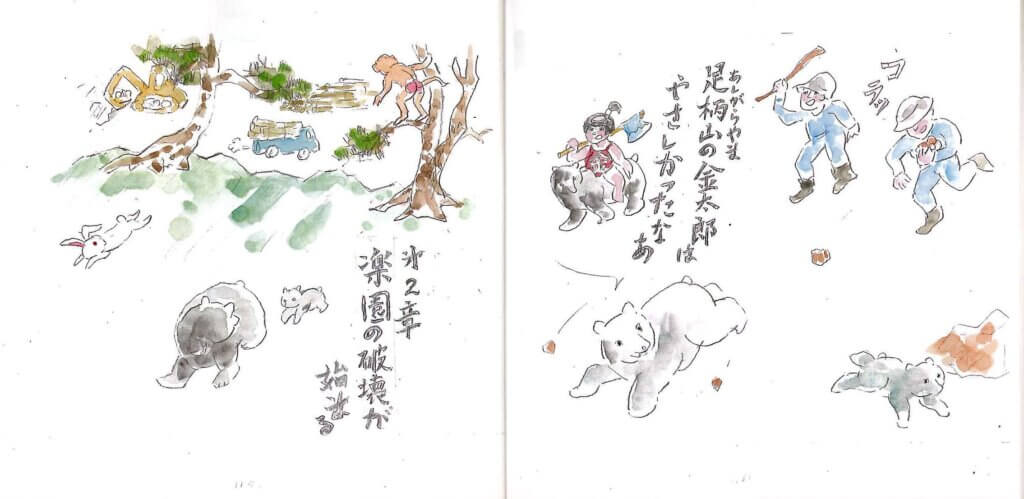 第2章
楽園の破壊が
始まる
コラッ
あしがらやま
足柄山の金太郎は
やさしかったなあ